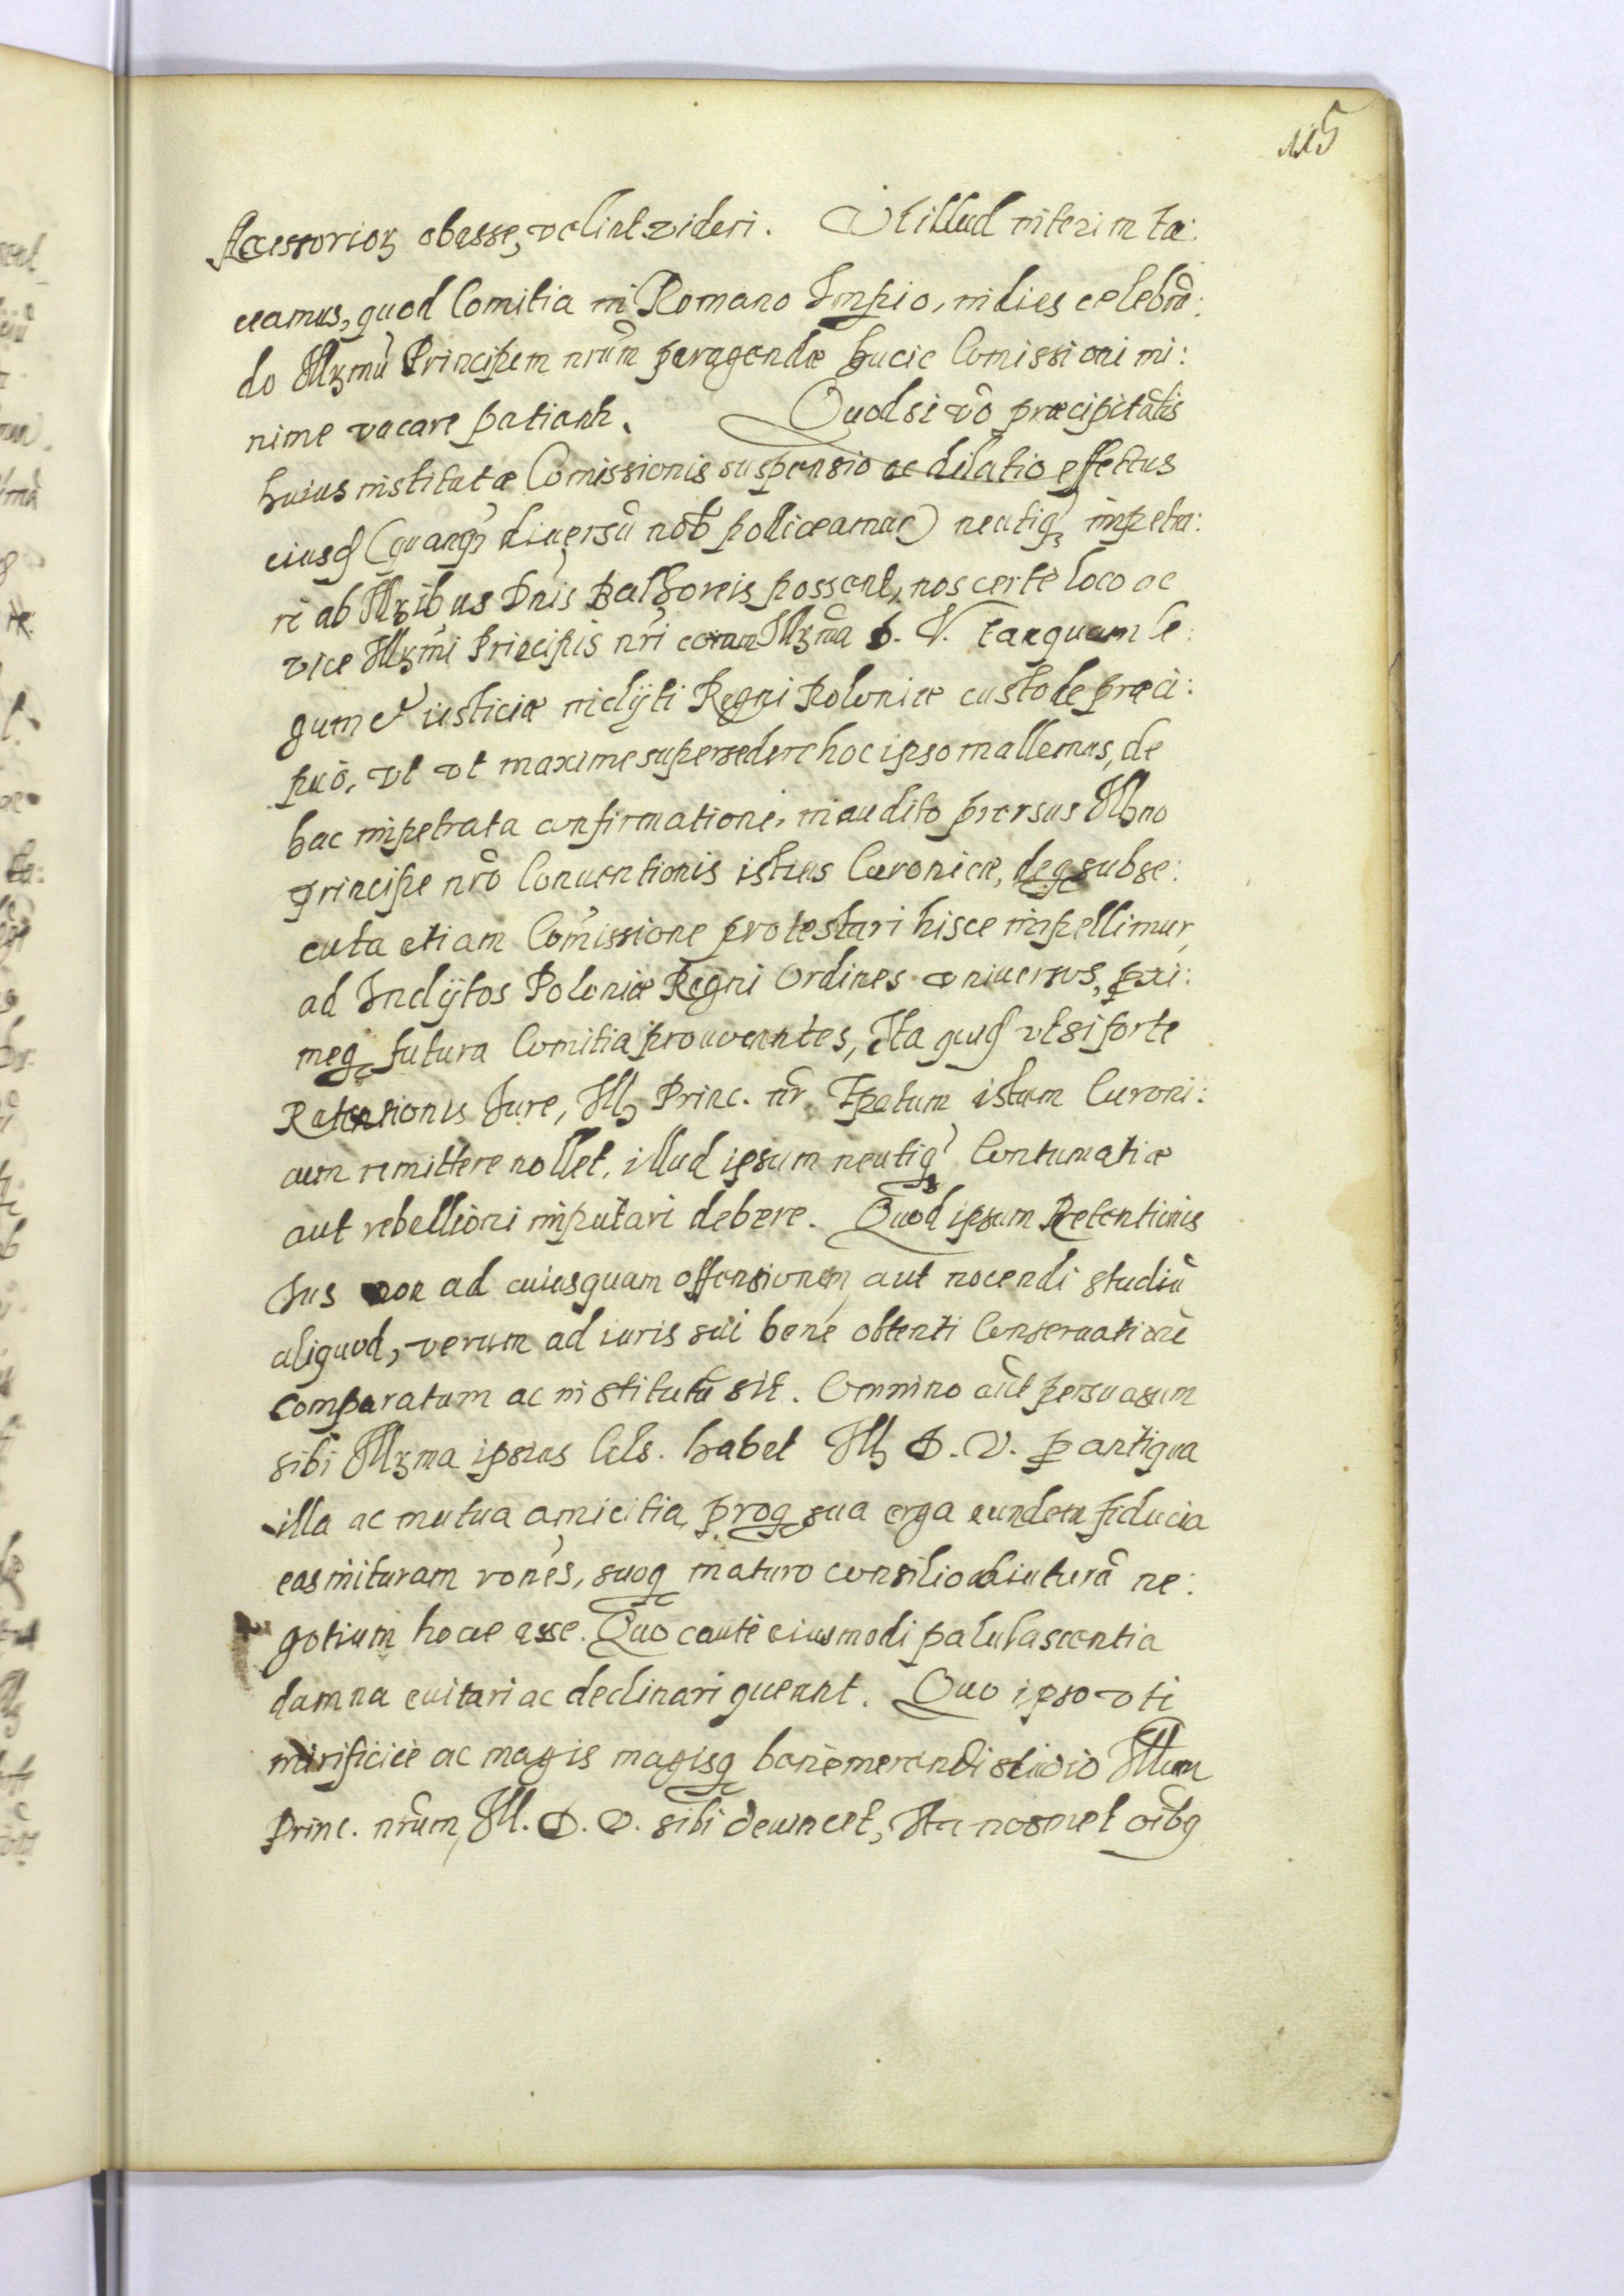 115
Accessorioꝝ obesse, velint videri. Vt illud interim ta:
ceamus, quod Comitia in Romano Impio, indies celebrã:
do Illꝫmũ Principem nrũm peragendæ huic Comissioni mi:
nime vacare patiant.
Quod si vo præcipitatis
huius institutæ Comissionis suspensio ac dilatio effectus
eiusꝗ (quanqꝫ diuersũ nob polliceamur) neutiqꝫ impetra:
ri ab Illꝫibus Dnis Bathoreis possent, nos certè loco ac
vice Illꝫmi Principis nri coram Illꝫma D. V. tanquam le:
gum et iusticiæ inclÿti Regni Poloniæ custode præci:
puo, vt vt maxime supersedere hoc ipso mallemus, de
hac impetrata confirmatione, inaudito prorsus Illꝫno
principe nrõ Conuentionis istius Curonicæ, deqꝫ subse:
cuta etiam Comissione protestari hisce impellimur,
ad Inclÿtos Poloniæ Regni Ordines vniuersos, pri:
meqꝫ futura Comitia prouocantes, Ita quꝗ vt si forte
Retensionis Iure, Illꝫ Princ. nr Tpatum istum Curoni:
cum remittere nollet, illud ipsum neutiqꝫ Contumatiæ
aut rebellioni imputari debere. Quod ipsum Retentionis
Ius non ad cuiusquam offensionem, aut nocendi studiũ
aliquod, verum ad iuris sui bene obtenti Conseruationẽ
comparatum ac institutũ sit. Omnino aũt persuasum
sibi Illꝫma ipsius Cels. habet Illꝫ D. V. ꝑ antiqua
illa ac mutua amicitia proqꝫ sua erga eundem fiducia
eas inituram rones, suoqꝫ maturo consilio adiuturã ne:
gotium hocce esse. Quo caute eiusmodi palulascentia
damna euitari ac declinari queant. Quo ipso vti
mirificicè ac magis magisqꝫ benemerendi studio Illum
Princ. nrũm, Ill. D. V. sibi deuincet, Ita nosmet oibqꝫ